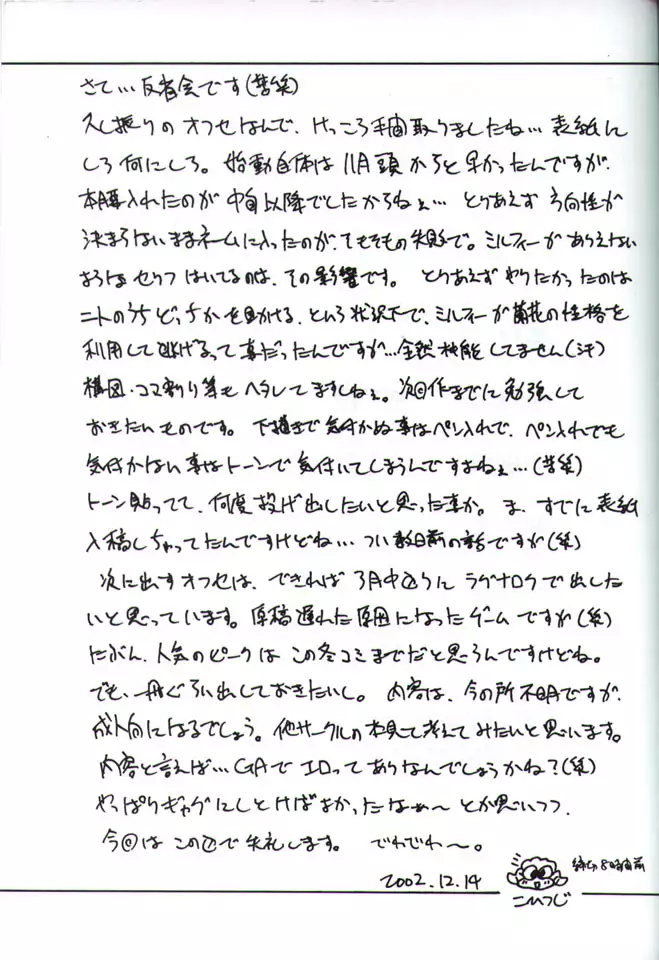 さて…反省会です(苦笑)
久し振りのオフセなんで、けっこう手間取りましたね…表紙に
しろ何にしろ。始動自体は11月頭からと早かったんですが、
本腰入れたのが中旬以降でしたからねぇ…とりあえず方向性が
決まらないままネームに入ったのが、そもそもの失敗で。ミルフィーがありえない
ようなセリフはいてるのは、その影響です。とりあえずやりたかったのは
ニ人のうちどっちかを助ける、という状況下で、ミルフィーが蘭花の性格を
利用して逃げるって事だったんですが…全然機能してません(汗)
構図・コマ割り等もヘタレてますしねぇ。次回作までに勉強して
おきたいものです。下描きで気付かぬ事はペン入れで、ペン入れでも
気付かない事はトーンで気付いてしまうんですよねぇ…(苦笑)
トーン貼ってて、何度投げ出したいと思った事か。ま、すでに表紙
入稿しちゃってたんですけどね…つい数日前の話ですが(笑)
次に出すオフセは、できれば3月中辺りにラグナロクで出した
いと思っています。原稿遅れた原因になったゲームですが(笑)
たぶん、人気のピークはこの冬コミまでだと思うんですけどね。
でも、一冊ぐらい出しておきたいし。内容は、今の所不明ですが、
成人向になるでしょう。他サークルの本見て考えてみたいと思います。
内容と言えば…GAでエロってありなんでしょうかね?(笑)
やっぱりギャグにしとけばよかったなぁ〜とか思いつつ、
今回はこの辺で失礼します。でわでわ〜。
2002.12.14
締切8時間前
こひつじ